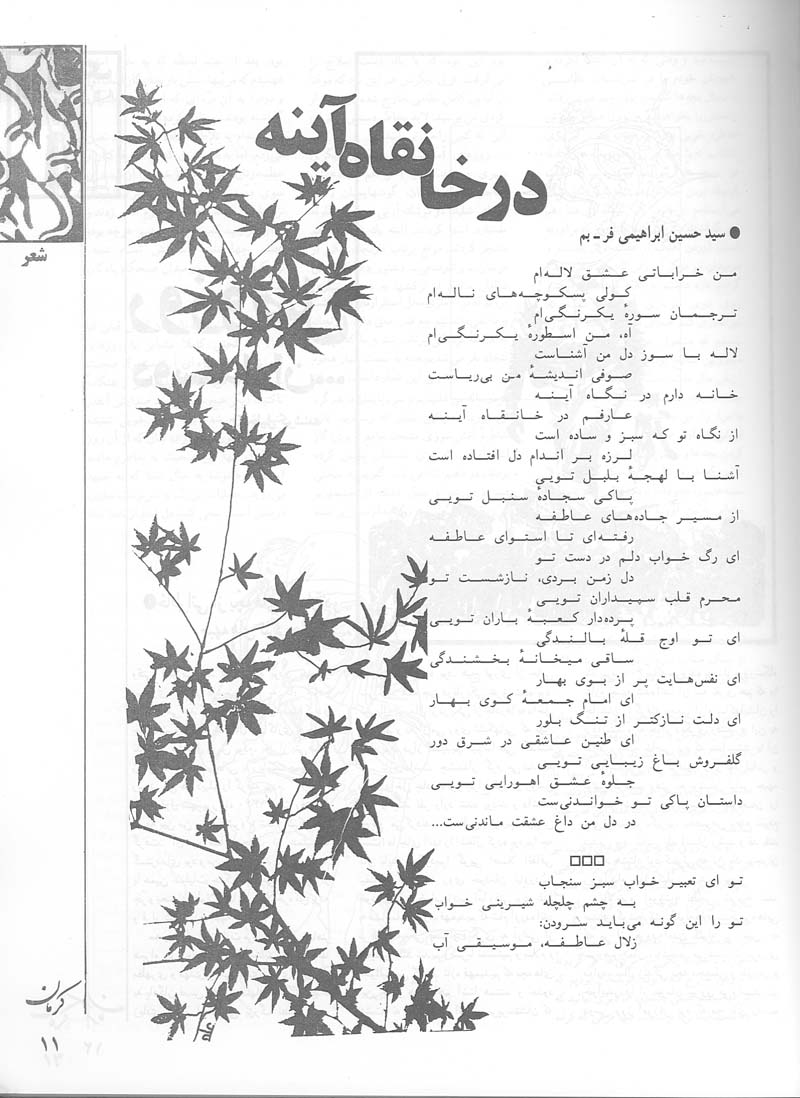 در خانقاه آینه
● سید حسین ابراهیمی فر ـ بم
شعر
من خراباتی عشق لاله‌ام
کولی پسکوچه‌های ناله‌ام
ترجمان سورهٔ یکرنگی‌ام
آه، من اسطورهٔ یکرنگی‌ام
لاله با سوز دل من آشناست
صوفی اندیشهٔ من بی‌ریاست
خانه دارم در نگاه آینه
عارفم در خانقاه آینه
از نگاه تو که سبز و ساده است
لرزه بر اندام دل افتاده است
آشنا با لهجهٔ بلبل تویی
پاکی سجادهٔ سنبل تویی
از مسیر جاده‌های عاطفه
رفته‌ای تا استوای عاطفه
ای رگ خواب دلم در دست تو
دل زمن بردی، نازشست تو
محرم قلب سپیداران تویی
پرده‌دار کعبهٔ باران تویی
ای تو اوج قلهٔ بالندگی
ساقی میخانهٔ بخشندگی
ای نفس‌هایت پر از بوی بهار
ای امام جمعهٔ کوی بهار
ای دلت نازکتر از تنگ بلور
ای طنین عاشقی در شرق دور
گلفروش باغ زیبایی تویی
جلوهٔ عشق اهورایی تویی
داستان پاکی تو خواندنی‌ست
در دل من داغ عشقت ماندنی‌ست...
□□□
تو ای تعبیر خواب سبز سنجاب
به چشم چلچله شیرینی خواب
تو را این گونه می‌باید سرودن:
زلال عاطفه، موسیقی آب
کرمان
۱۱